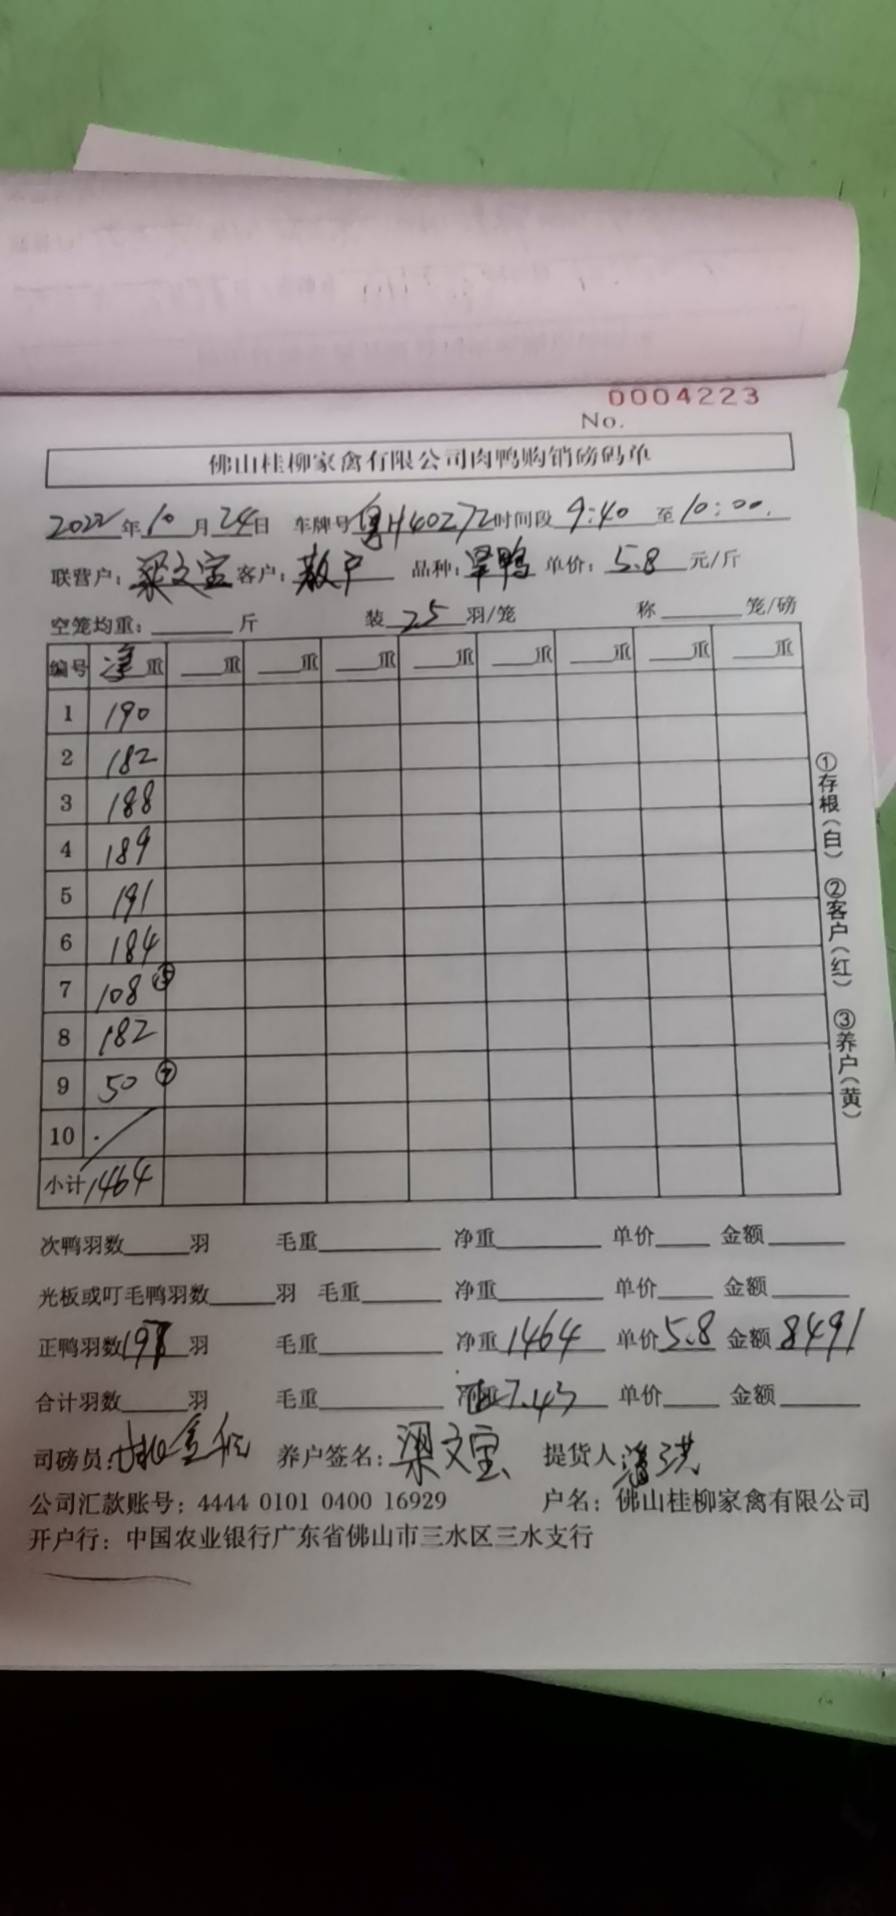 0004223
No.
佛山桂柳家禽有限公司肉鸭购销磅码单
2022年10月24日 车牌号粤H40272时间段9:40至10:00.
联营户:梁文宝客户:散户 品种:旱鸭 单价:5.8元/斤
空笼均重:____斤 装25羽/笼 称____笼/磅
编号 净重 __重 __重 __重 __重 __重 __重 __重 __重
1 190
2 182
3 188
4 189
5 191
6 184
7 108
8 182
9 50 ⑦
10
小计1464
①存根(白) ②客户(红) ③养户(黄)
次鸭羽数____羽 毛重____ 净重____ 单价____ 金额____
光板或叮毛鸭羽数____羽 毛重____ 净重____ 单价____ 金额____
正鸭羽数197羽 毛重____ 净重1464 单价5.8 金额8491
合计羽数____羽 毛重____ 7.43 单价____ 金额____
司磅员: 养户签名:梁文宝 提货人:潘洪
公司汇款账号:4444 0101 0400 16929 户名:佛山桂柳家禽有限公司
开户行:中国农业银行广东省佛山市三水区三水支行